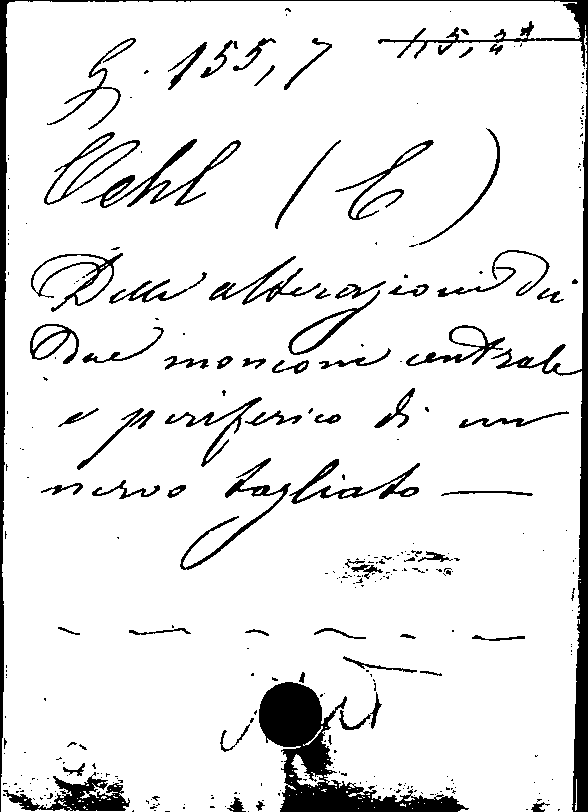 G. 155,7
Oehl (E)
Delle alterazioni dei
due monconi centrale
e periferico di un
nervo tagliato —